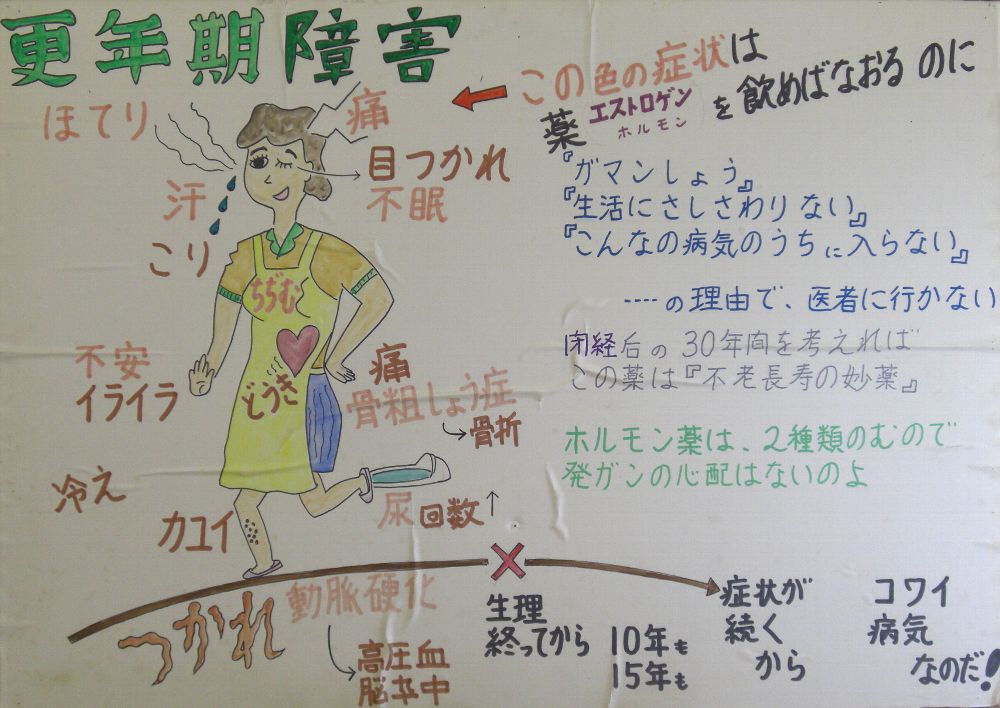 更年期障害
ほてり
痛
目つかれ
不眠
汗
こり
ちぢむ
どうき
不安
イライラ
痛
骨粗しょう症
→骨折
冷え
カユイ
尿回数↑
つかれ
動脈硬化
→高圧血
脳卒中
←この色の症状は
薬エストロゲンホルモンを飲めばなおるのに
『ガマンしょう』
『生活にさしさわりない』
『こんなの病気のうちに入らない』
‥‥の理由で、医者に行かない
閉経后の30年間を考えれば
この薬は『不老長寿の妙薬』
ホルモン薬は、2種類のむので
発ガンの心配はないのよ
×
生理
終ってから
10年も
15年も
症状が
続く
から
コワイ
病気
なのだ!